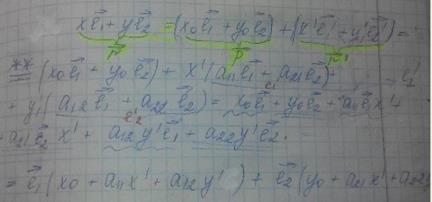 xe⃗₁ + ye⃗₂ = (x₀e⃗₁ + y₀e⃗₂) + (x'e⃗₁' + y'e⃗₂') =
r⃗ p⃗ r⃗'
** = (x₀e⃗₁ + y₀e⃗₂) + x'(a₁₁e⃗₁ + a₂₁e⃗₂) +
e⃗₁'
+ y'(a₁₂e⃗₁ + a₂₂e⃗₂) = x₀e⃗₁ + y₀e⃗₂ + a₁₁e⃗₁x' +
e⃗₂'
+ a₂₁e⃗₂x' + a₁₂y'e⃗₁ + a₂₂y'e⃗₂ =
= e⃗₁(x₀ + a₁₁x' + a₁₂y') + e⃗₂(y₀ + a₂₁x' + a₂₂